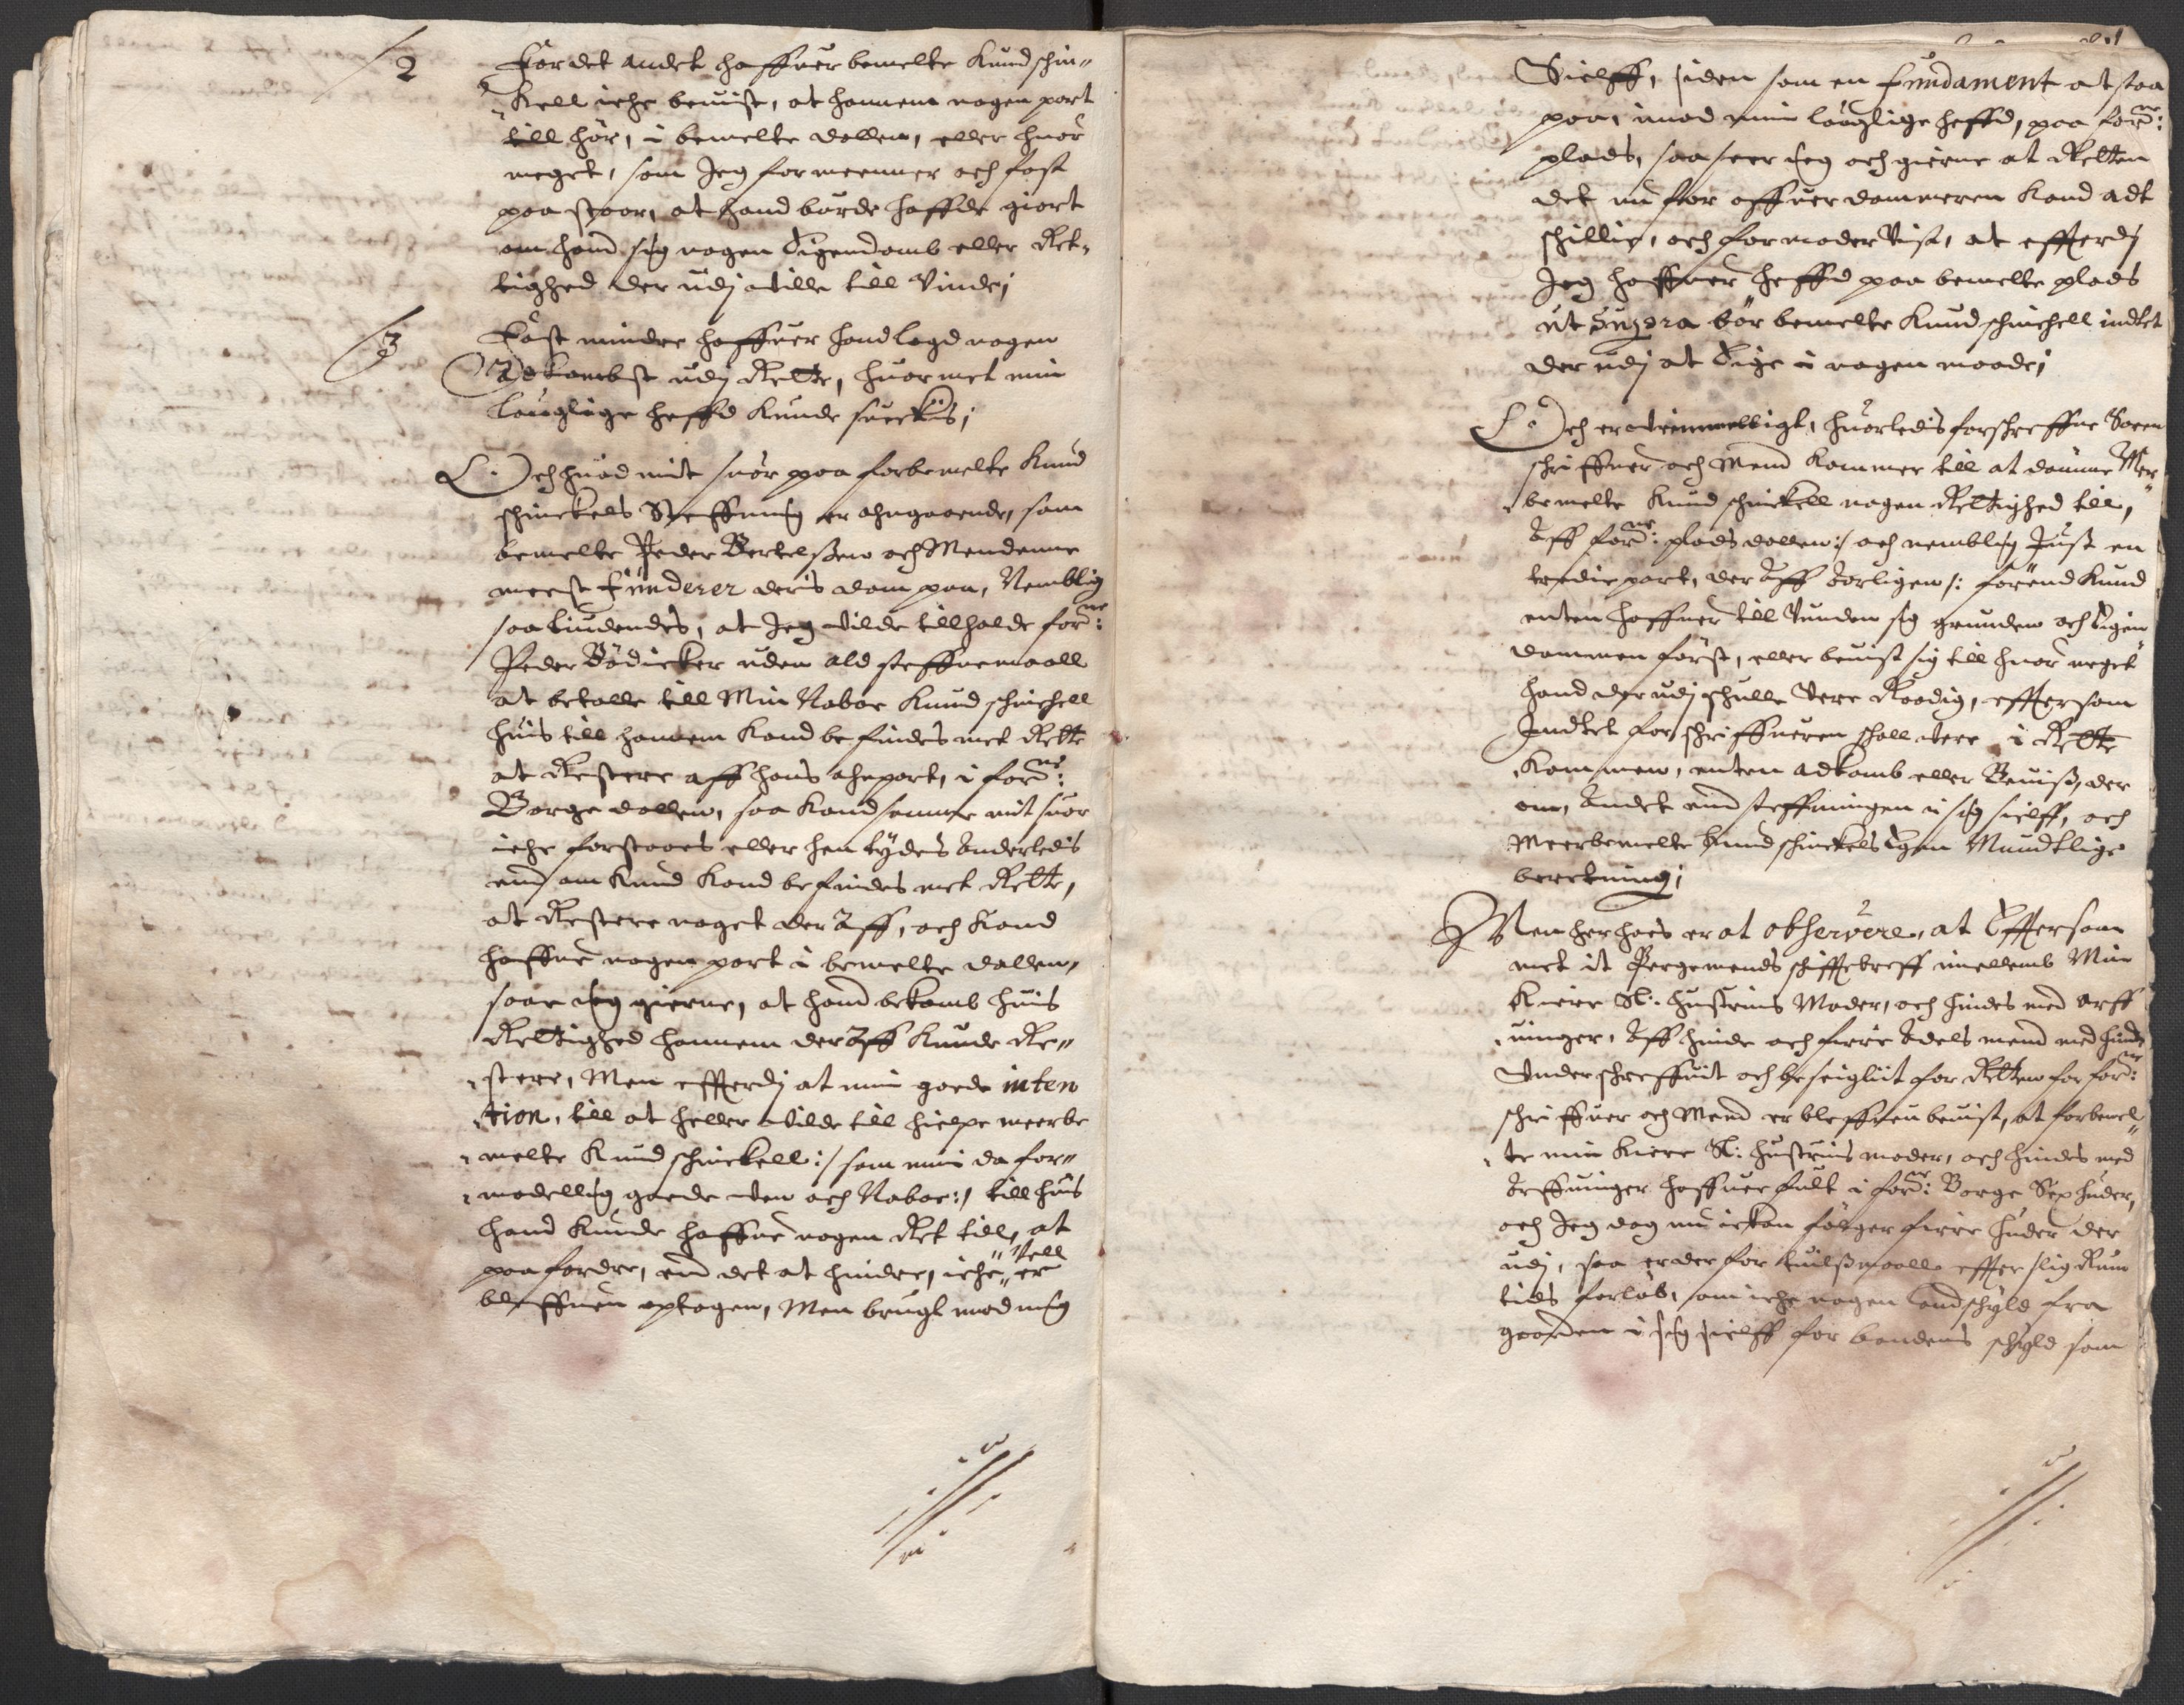 2
For det andet haffuer bemelte Knud schin„
„kell iche beuist, at hannem nogen part
till hör, i bemelte dollen, eller huor
meget, som Jeg formeenner och fast
paa stoor, at hand burde haffde giort
om hand sig nogen Eigendomb eller Ret„
tighed der udj wille till Vinde;
3
Fast mindre haffuer hand lagd nogen
Adkombst udj Rette, huormet min
lauglige heffd kunde suectis;
Och huad mit suör paa forbemelte Knud
schinckels Steffning er ahngaaende, som
bemelte Peder Bertelsen och Mendene
meest funderer deris dom paa, Nemblig
saa liudendes, at Jeg wilde tillholde forne:
Peder Bödicker uden ald steffnemaall
at betalle till Min Nabor Knud schinchell
huis till hannem kand befindes met Rette
at Restere aff hans ahnpart, i forne:
Borge dollen, saa kand samme mit suor
iche forstaaes eller hentydes anderledis
end om Knud kand befindes met Rette,
at Restere noget der aff, och kand
haffue nogen part i bemelte dallen,
saae Jeg gierne, at hand bekomb huis
Rettighed hannem der aff kunde Re„
„stere, Men effterdj at min goede inten
„tion, till at heller wilde till hielpe meerbe
„melte Knud schinckell :/ som min da for„
„modellig goede wen och Nabor :/ till huis
hand kunde haffue nogen Ret till, at
paa fordre, end det at hindre, iche „Vell„ er
bleffuen optagen, Men brugt mod mig
Sielff, siden som en fundament at staa
paa, imod min lauglige heffd, paa forne:
plads, saa seer Jeg och gierne at Retten
det nu for offuerdommeren kand adt
schillie, och formoder Vist, at effterdj
Jeg haffuer heffd paa bemelte plads
ut supra bör bemelte Knud schinchell indtet
der udj at Eige i nogen maade;
Och er wrimmelligt, huorledis forschreffne Soeren
schriffuer och Mend kommer till at dömme Meer
„bemelte Knud schinckell nogen Rettighed till,
Aff forne: plads dollen :/ och nemblig Just en
tredie part, der Aff Aarligen /: förend Knud
enten haffuer till Vunden sig grunden och Eigen
dommen först, eller beuist sig till huor meget
hand der udj schulle Vere Raadig, effter som
Indtet for schriffueren schall were i Rette
kommen, enten adkomb eller Beuiss, der
om, Andet end steffningen i sig sielff, och
Meerbemelte Knud schinckels Egen Mundtlige
beretning;
Men her hoes er at observere, at Effter som
met it Pergemends schifftebreff imellemb Min
Kiere Sl: Hustruis Moder, och hindes med arff
„uinger, Aff hinde och fiere Adels mend med hinde
Underschreffuit och beseiglit for Retten for forne:
schriffuer och Mend er bleffuen beuist, at forbemel„
„te min Kiere Sl: Hustruis moder, och hindes med
Arffuinger haffuer fult i forne: Borge Sex huder,
och Jeg dog nu ickon fölger fiire huder der
udj, saa er der for tuilssmaall effter slig Rum
tids forlöb, om iche nogen Landschyld fra
gaarden i sig sielff for bondens schyld som